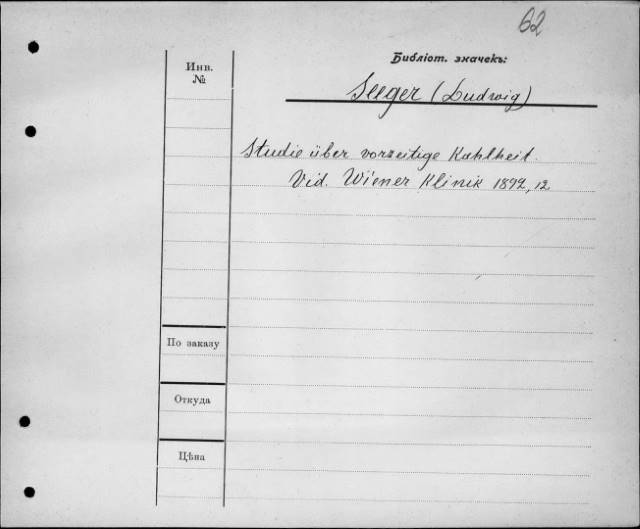 62
Библіот. значекъ:
Инв.
№
Seeger (Ludwig)
Studie über vorzeitige Kahlheit.
Vid. Wiener Klinik 1892, 12
По заказу
Откуда
Цѣна